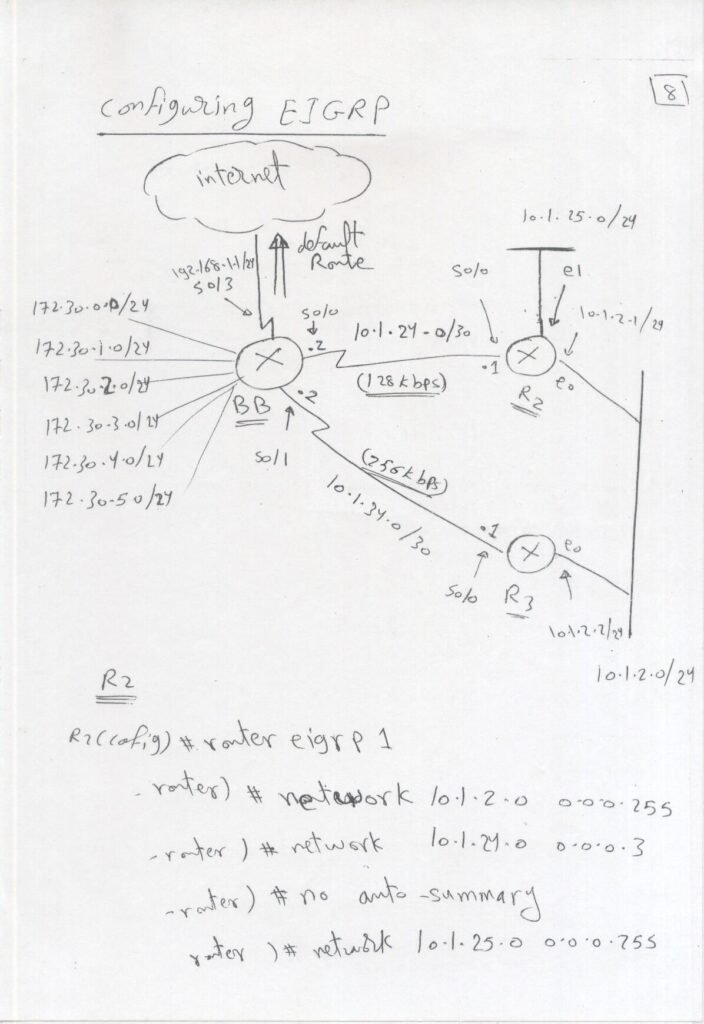 8
Configuring EIGRP
internet
default
Route
192.168.1.1/24
S0/3
10.1.25.0/24
e1
S0/0
10.1.2.1/24
172.30.0.0/24
172.30.1.0/24
172.30.2.0/24
172.30.3.0/24
172.30.4.0/24
172.30.5.0/24
S0/0
.2
10.1.24.0/30
(128kbps)
.1
R2
e0
BB
.2
S0/1
(256kbps)
10.1.34.0/30
.1
e0
S0/0
R3
10.1.2.2/24
10.1.2.0/24
R2
R2(cofig) # router eigrp 1
-router) # network 10.1.2.0 0.0.0.255
-router) # network 10.1.24.0 0.0.0.3
-router) # no auto-summary
router) # network 10.1.25.0 0.0.0.255